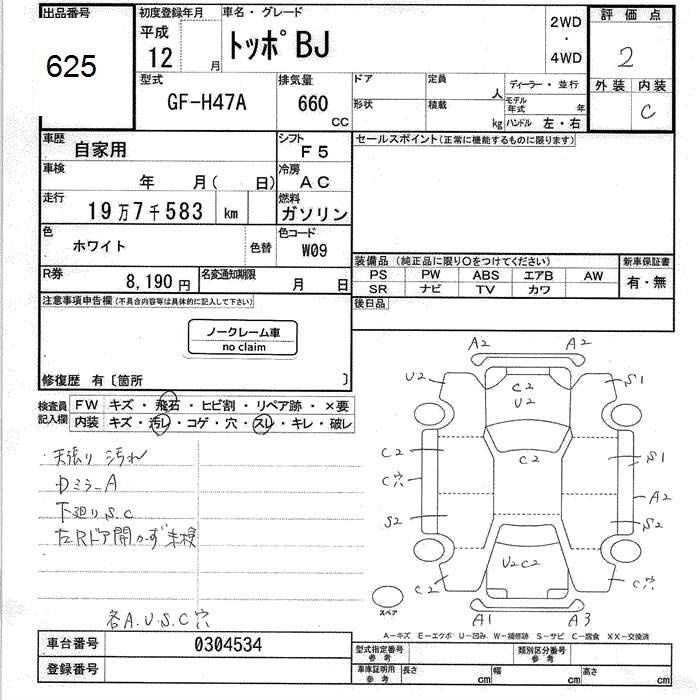 出品番号
625
初度登録年月
平成
12 月
車名・グレード
トッポBJ
2WD
・
4WD
評価点
2
外装 内装
C
型式
GF-H47A
排気量
660
CC
ドア
定員
人
ディーラー・並行
形状
積載
kg
モデル年式
年
ハンドル 左・右
車歴
自家用
シフト
F5
セールスポイント(正常に機能するものに限ります)
車検
年 月( 日)
冷房
AC
走行
19万7千583 km
燃料
ガソリン
色
ホワイト
色替
色コード
W09
装備品(純正品に限り○をつけてください)
新車保証書
PS PW ABS エアB AW
有・無
SR ナビ TV カワ
R券
8,190円
名変通知期限
月 日
後日品
注意事項申告欄(不具合内容等は具体的に記入して下さい)
ノークレーム車
no claim
修復歴 有〔箇所 〕
検査員記入欄
FW キズ・飛石・ヒビ割・リペア跡・×要
内装 キズ・汚レ・コゲ・穴・スレ・キレ・破レ
天張り 汚れ
DミラーA
下廻りS.C
左Rドア開かず未検
各A.U.S.C穴
A2 A2
U2 C2 S1
U2
C2 C2 S1
C穴 A2
S2 S2
U2C2
C2 C穴
スペア
A1 A3
A-キズ E-エクボ U-凹み W-補修跡 S-サビ C-腐食 XX-交換済
車台番号
0304534
登録番号
型式指定番号
参考
類別区分番号
参考
車庫証明用
参考
長さ cm 幅 cm 高さ cm